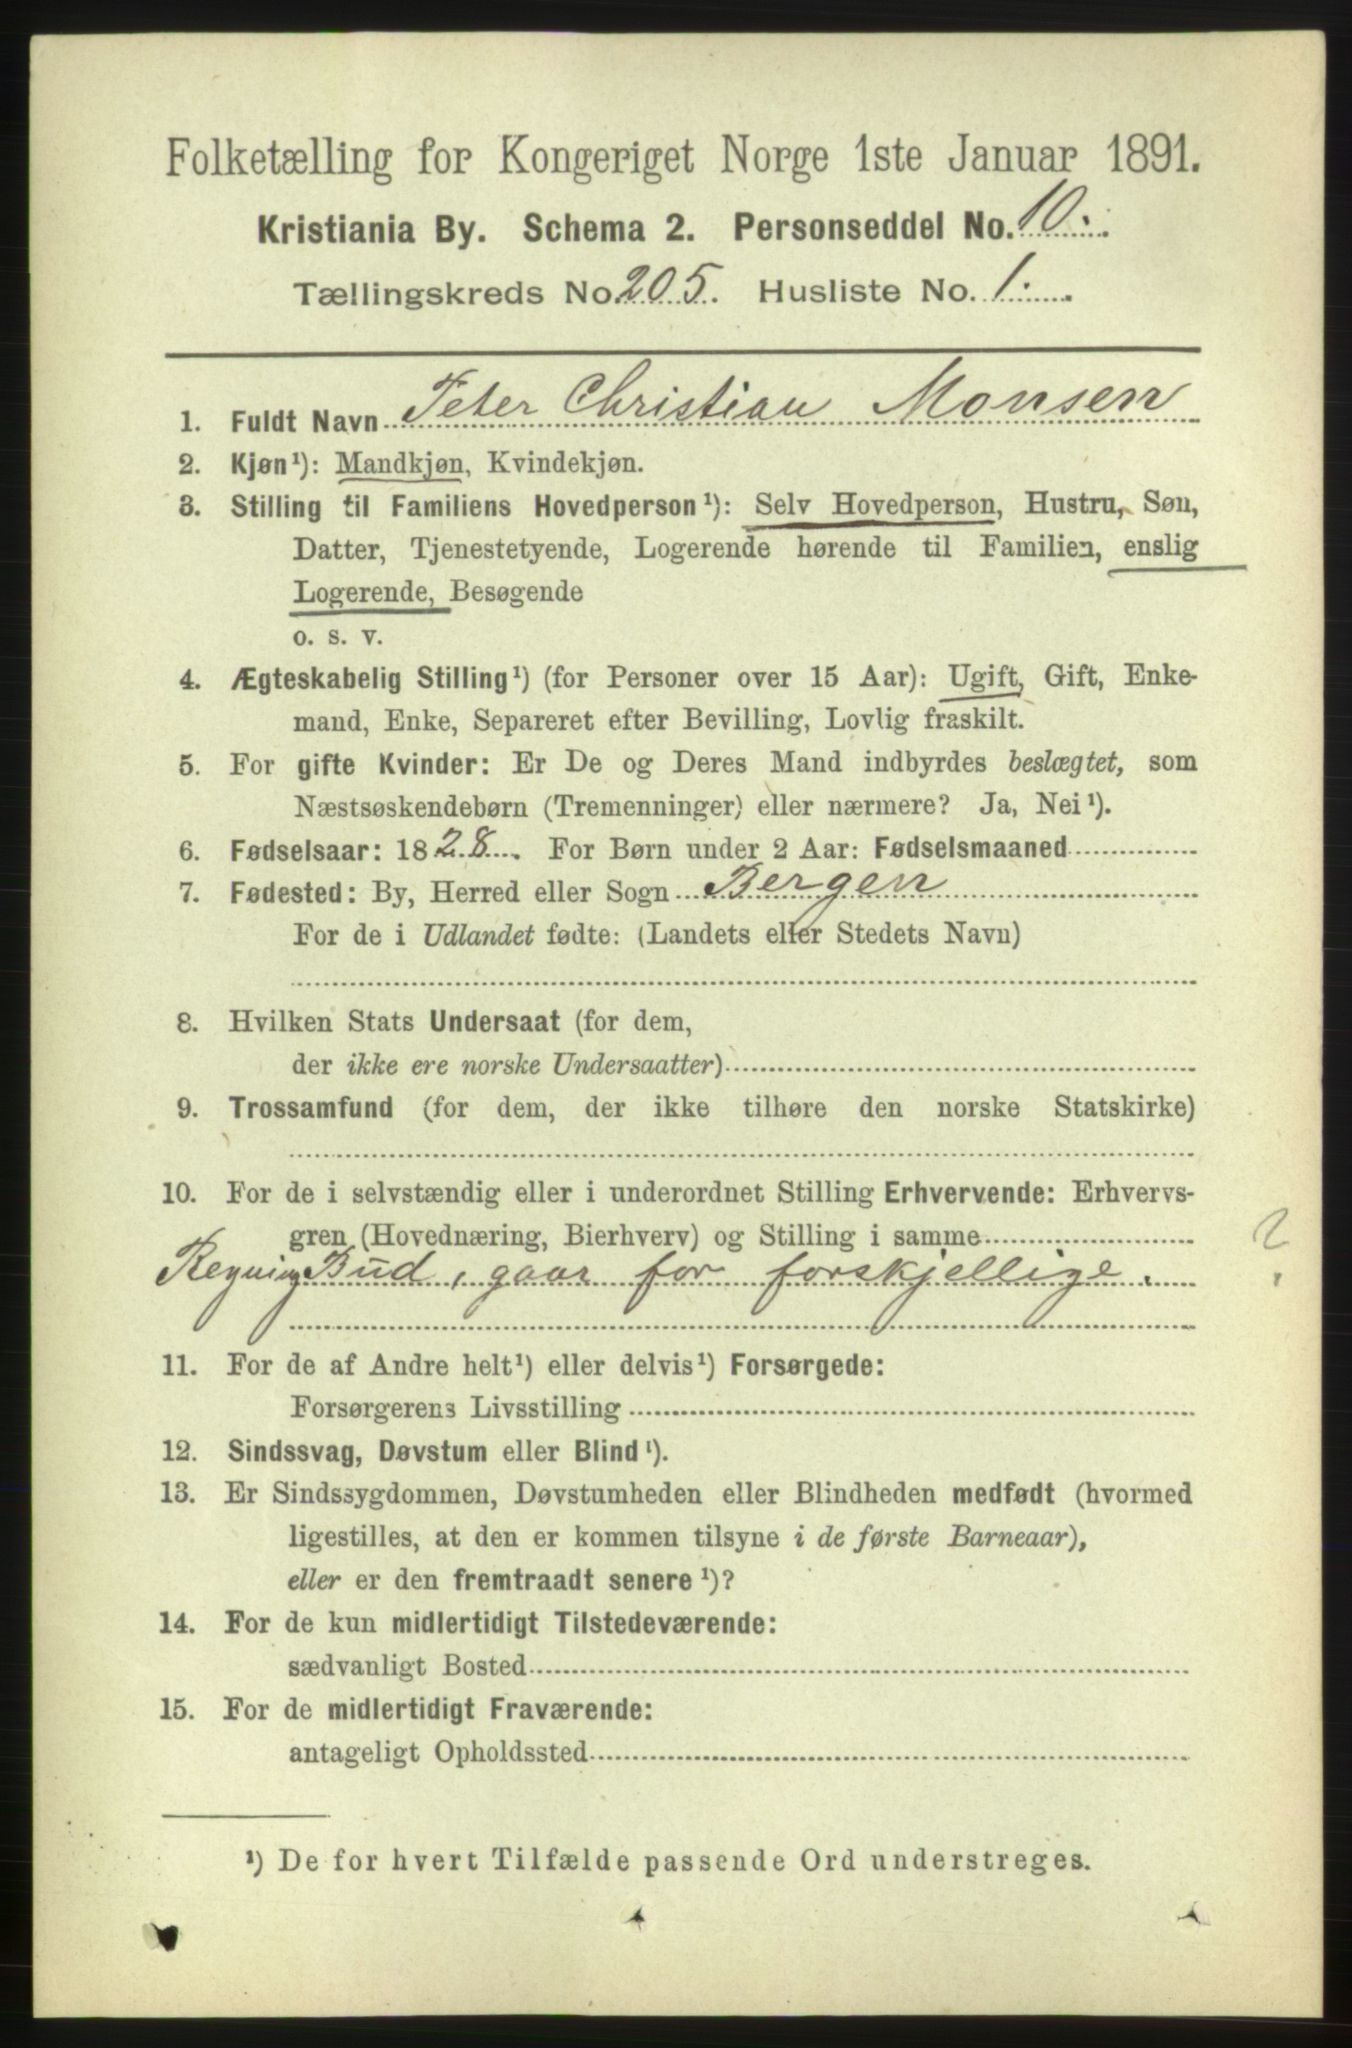 Folketælling for Kongeriget Norge 1ste Januar 1891.
Kristiania By. Schema 2. Personseddel No. 10.
Tællingskreds No. 205. Husliste No. 1.
1. Fuldt Navn Peter Christian Monsen
2. Kjøn¹): Mandkjøn, Kvindekjøn.
3. Stilling til Familiens Hovedperson¹): Selv Hovedperson, Hustru, Søn,
Datter, Tjenestetyende, Logerende hørende til Familien, enslig
Logerende, Besøgende
o. s. v.
4. Ægteskabelig Stilling¹) (for Personer over 15 Aar): Ugift, Gift, Enke-
mand, Enke, Separeret efter Bevilling, Lovlig fraskilt.
5. For gifte Kvinder: Er De og Deres Mand indbyrdes beslægtet, som
Næstsøskendebørn (Tremenninger) eller nærmere? Ja, Nei¹).
6. Fødselsaar: 1828. For Børn under 2 Aar: Fødselsmaaned
7. Fødested: By, Herred eller Sogn Bergen
For de i Udlandet fødte: (Landets eller Stedets Navn)
8. Hvilken Stats Undersaat (for dem,
der ikke ere norske Undersaatter)
9. Trossamfund (for dem, der ikke tilhøre den norske Statskirke)
10. For de i selvstændig eller i underordnet Stilling Erhvervende: Erhvervs-
gren (Hovednæring, Bierhverv) og Stilling i samme
Regnings Bud, gaar for forskjellige. ?
11. For de af Andre helt¹) eller delvis¹) Forsørgede:
Forsørgerens Livsstilling
12. Sindssvag, Døvstum eller Blind¹).
13. Er Sindssygdommen, Døvstumheden eller Blindheden medfødt (hvormed
ligestilles, at den er kommen tilsyne i de første Barneaar),
eller er den fremtraadt senere¹)?
14. For de kun midlertidigt Tilstedeværende:
sædvanligt Bosted
15. For de midlertidigt Fraværende:
antageligt Opholdssted
¹) De for hvert Tilfælde passende Ord understreges.